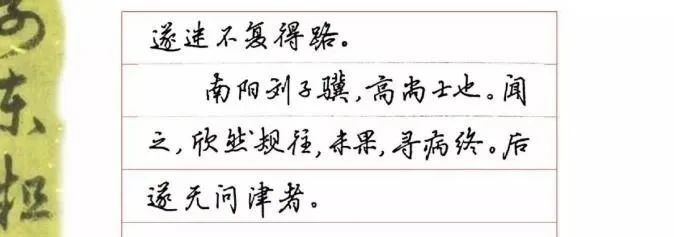 遂迷不复得路。
南阳刘子骥，高尚士也。闻
之，欣然规往，未果，寻病终。后
遂无问津者。